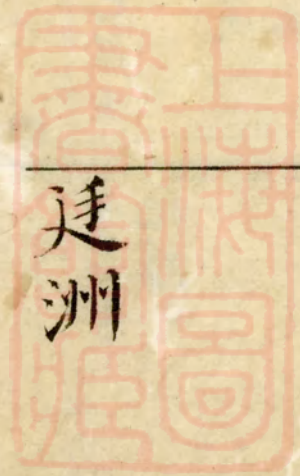 上海圖
書館藏
廷洲